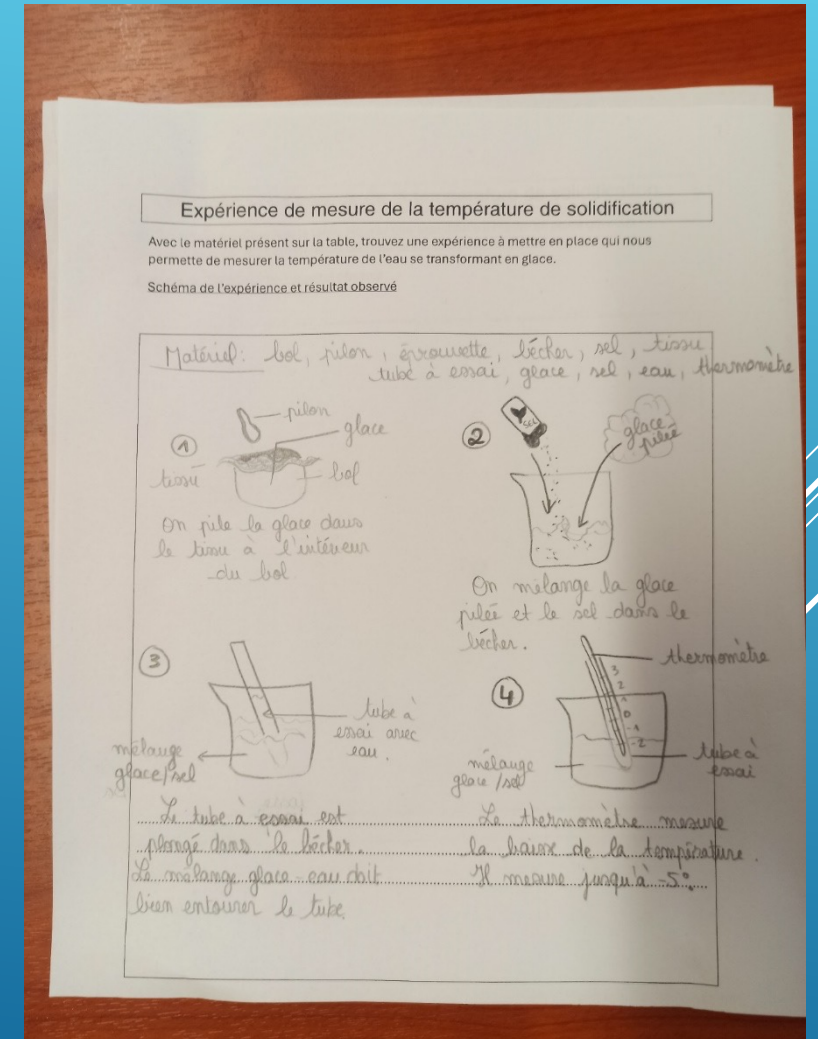 Expérience de mesure de la température de solidification
Avec le matériel présent sur la table, trouvez une expérience à mettre en place qui nous
permette de mesurer la température de l'eau se transformant en glace.
Schéma de l'expérience et résultat observé
Matériel : bol, pilon, éprouvette, bécher, sel, tissu
tube à essai, glace, sel, eau, thermomètre
1
pilon
glace
tissu
bol
On pile la glace dans
le tissu à l'intérieur
du bol
2
SEL
glace
pilée
On mélange la glace
pilée et le sel dans le
bécher.
3
tube à
essai avec
eau.
mélange
glace/sel
Le tube à essai est
plongé dans le bécher.
Le mélange glace-eau doit
bien entourer le tube.
4
thermomètre
3
2
1
0
-1
-2
tube à
essai
mélange
glace/sel
Le thermomètre mesure
la baisse de la température.
Il mesure jusqu'à -5°.